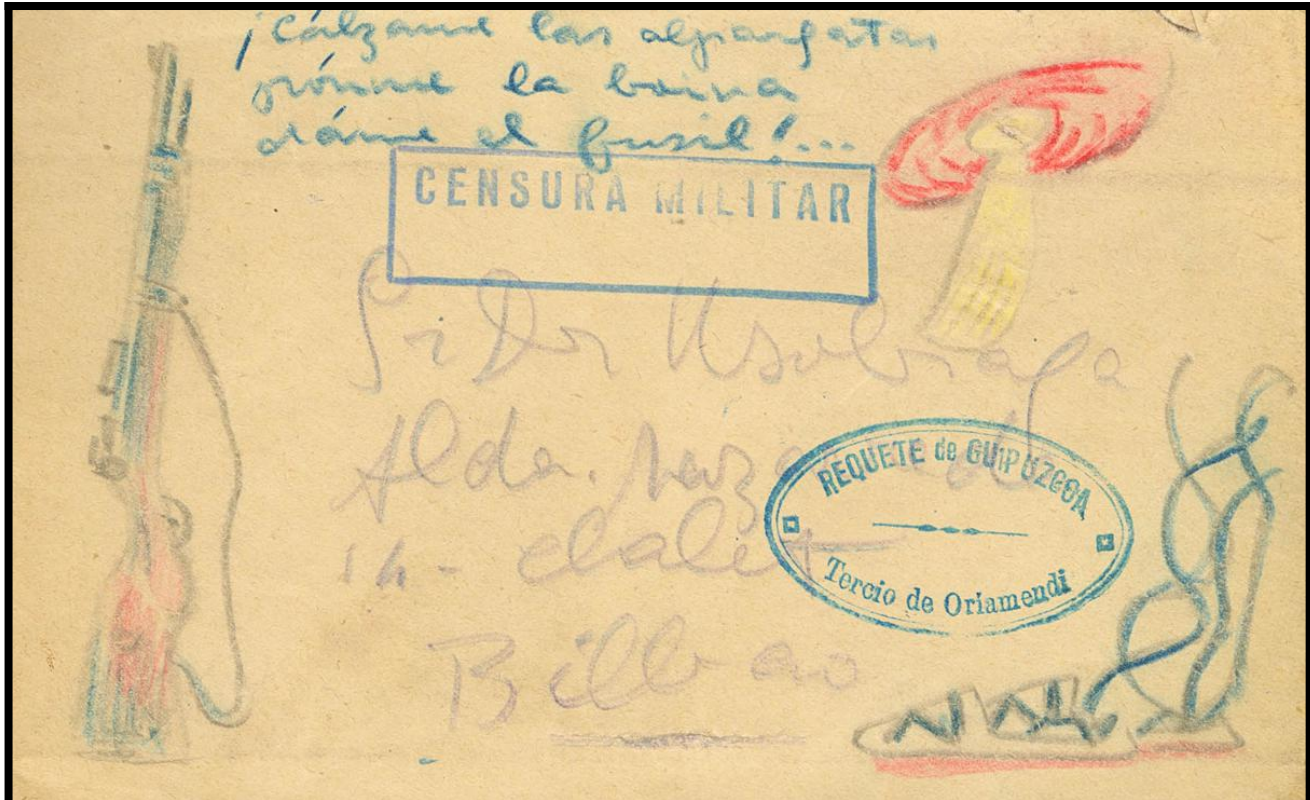 ¡Cálzame las alpargatas
pónme la boina
dáme el fusil!...
CENSURA MILITAR
Sr Dr Usobiaga
Alda.
14 - chalet
Bilbao
REQUETE de GUIPUZCOA
Tercio de Oriamendi